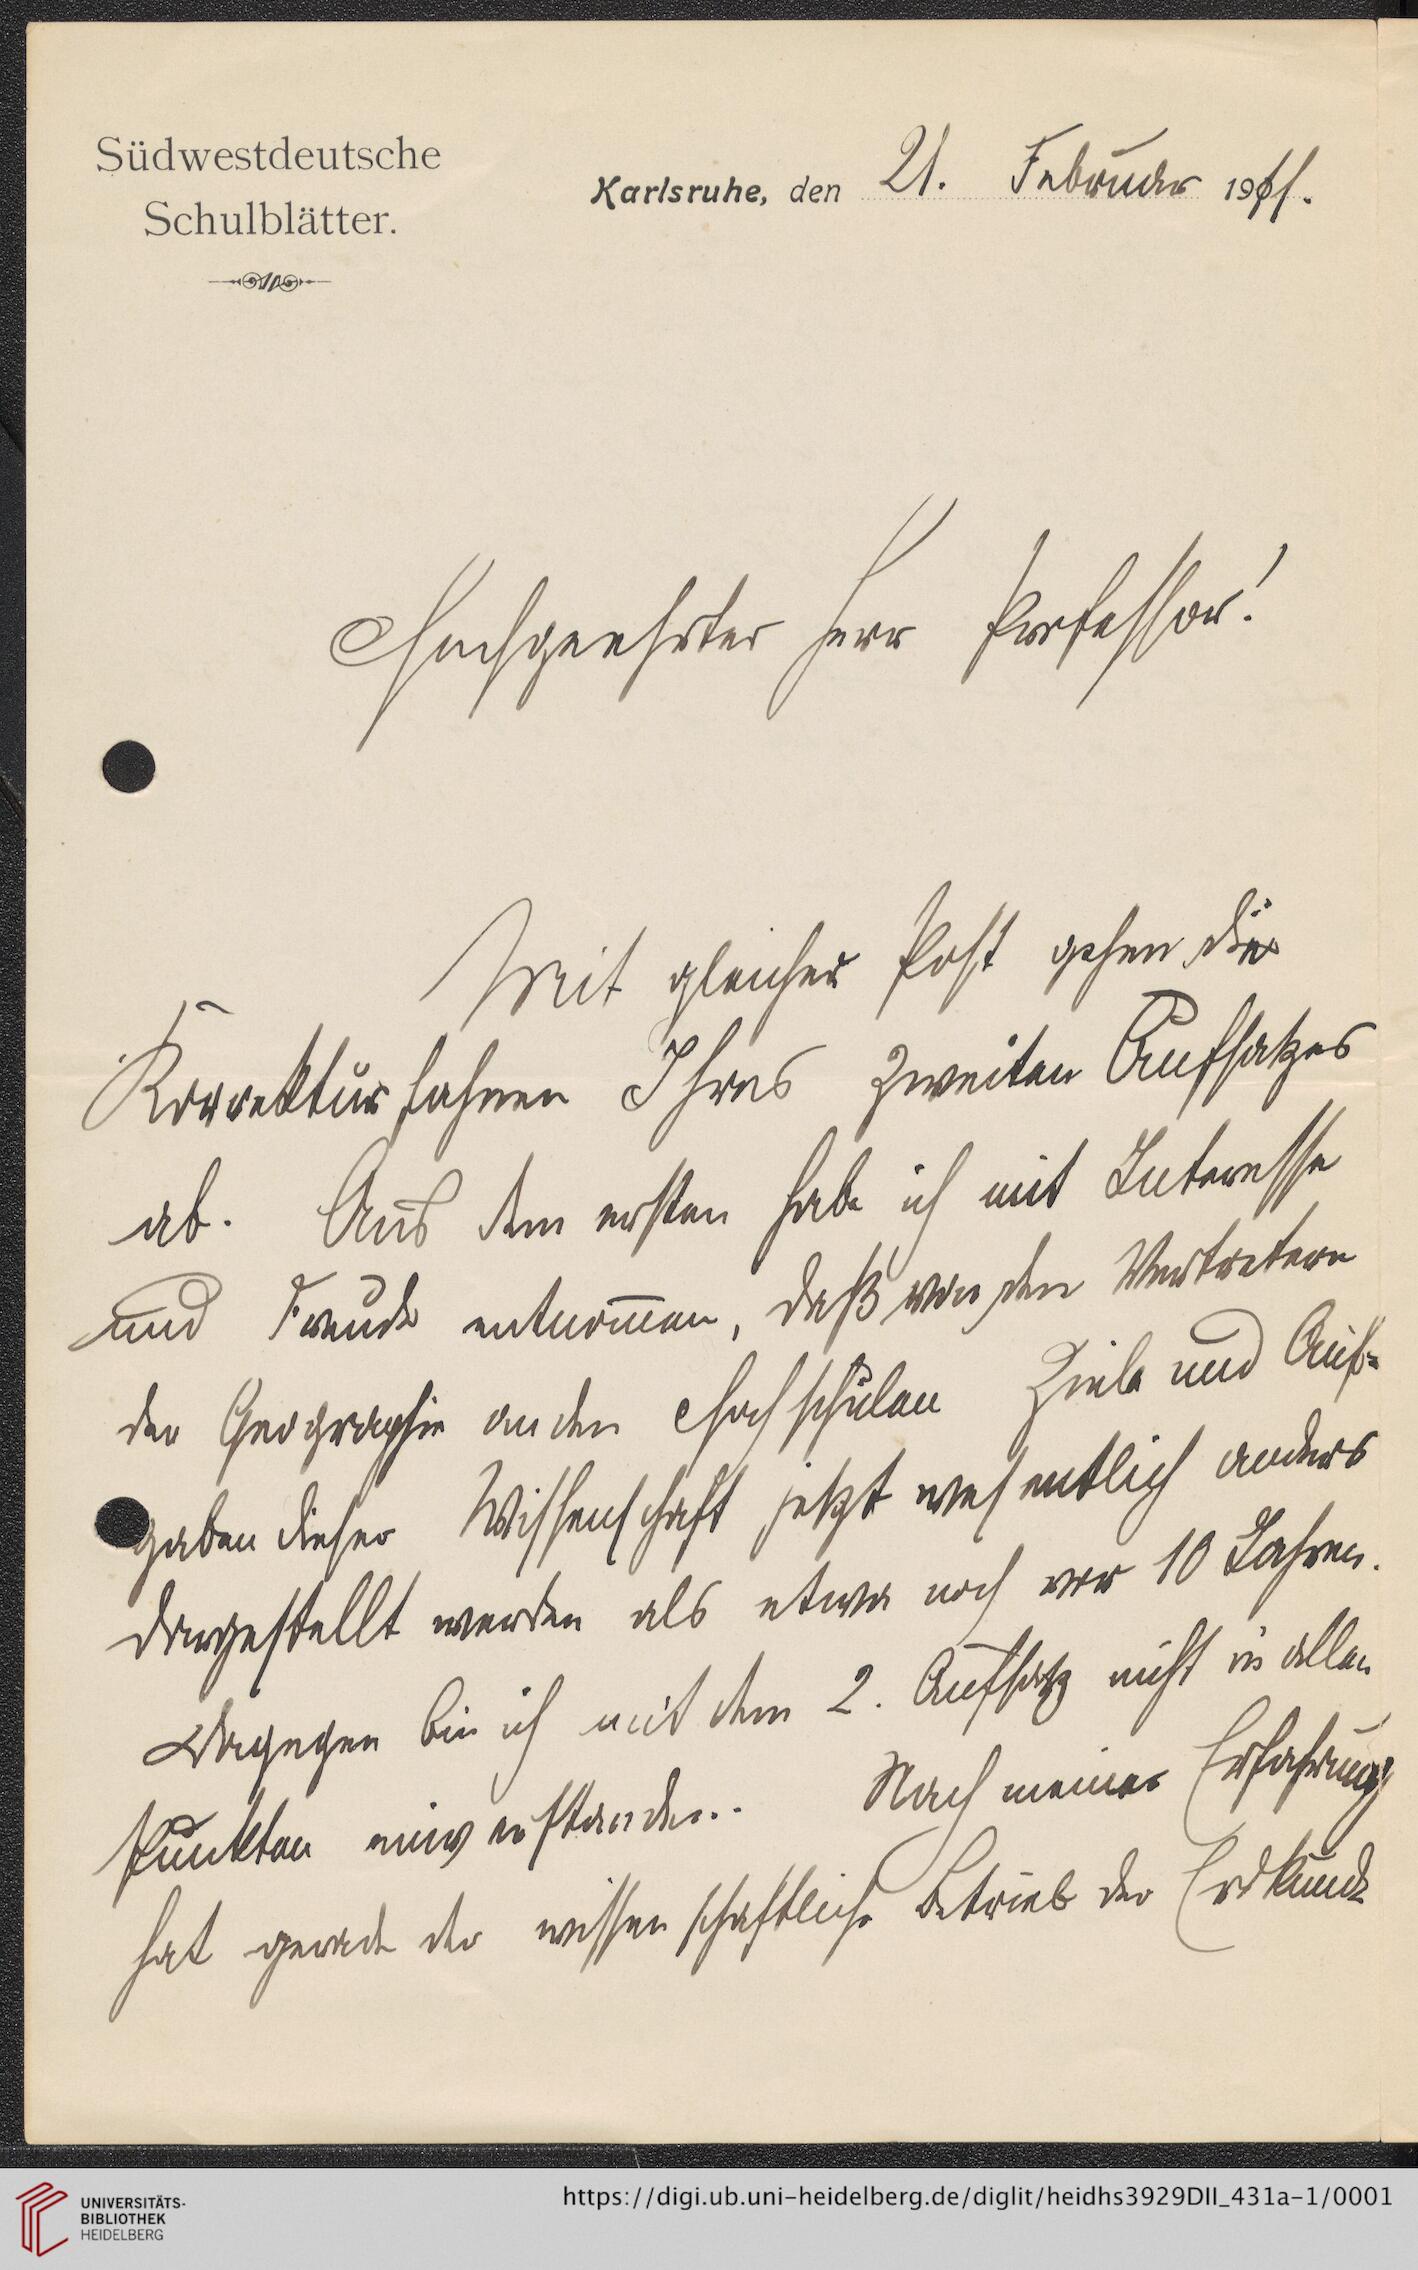 Südwestdeutsche
Schulblätter.
Karlsruhe, den 21. Februar 1911.
Hochgeehrter Herr Professor!
Mit gleicher Post gehen die
Korrekturfahnen Ihres zweiten Aufsatzes
ab. Aus dem ersten habe ich mit Interesse
und Freude entnom̅en, daß von den Vertretern
der Geographie an den Hochschulen Ziele und Auf=
gaben dieser Wissenschaft jetzt wesentlich anders
dargestellt werden als etwa noch vor 10 Jahren.
Dagegen bin ich mit dem 2. Aufsatz nicht in allen
Punkten einverstanden. Nach meiner Erfahrung
hat gerade der wissenschaftliche Betrieb der Erdkunde
UNIVERSITÄTS-
BIBLIOTHEK
HEIDELBERG
https://digi.ub.uni-heidelberg.de/diglit/heidhs3929DII_431a-1/0001